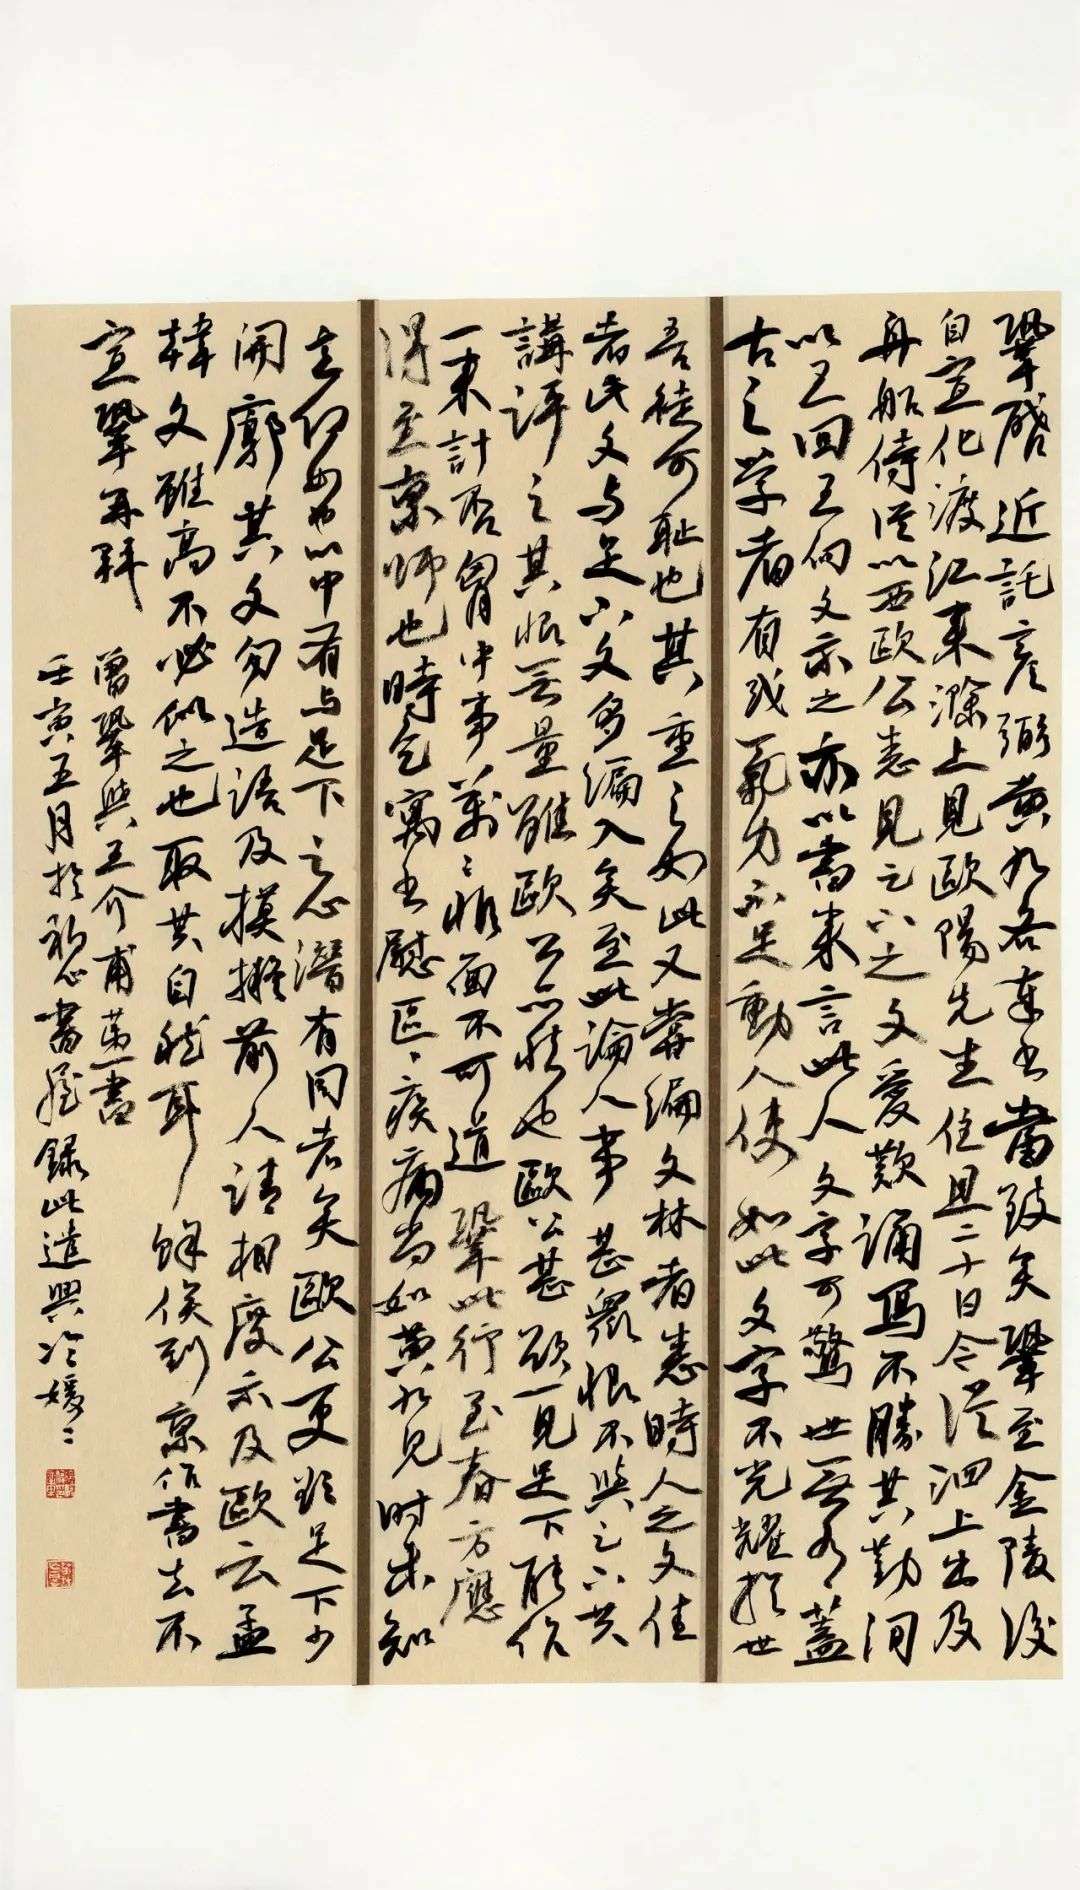 鞏啓近託彦弼黄九各奉书當致矣鞏至金陵後
自宣化渡江来滁上見歐陽先生住且二十日今從泗上出及
舟船侍從以西歐公悉見足下之文愛歎誦寫不勝其勤间
以王回王向文示之亦以書来言此人文字可驚世無有蓋
古之学者有或氣力不足動人使如此文字不光耀於世
吾徒可恥也其重之如此又嘗編文林者悉時人之文佳
者此文与足下文多編入矣至此論人事甚衆恨不與足下共
講評之其恨無量雖歐公亦然也歐公甚欲一見足下能作
一来計否胷中事萬萬非面不可道鞏此行至春方應
得至京师也時乞寓书慰區區疾病尚如黄九見时未知
竟何如也心中有与足下之意潛有同者矣歐公更欲足下少
開廓其文勿造語及摸擬前人請相度示及歐云孟
韓文雖高不必似之也取其自然耳餘俟到京作書去不
宣鞏再拜
曾鞏與王介甫第一書
壬寅五月於初心書屋錄此遣興冷媛媛